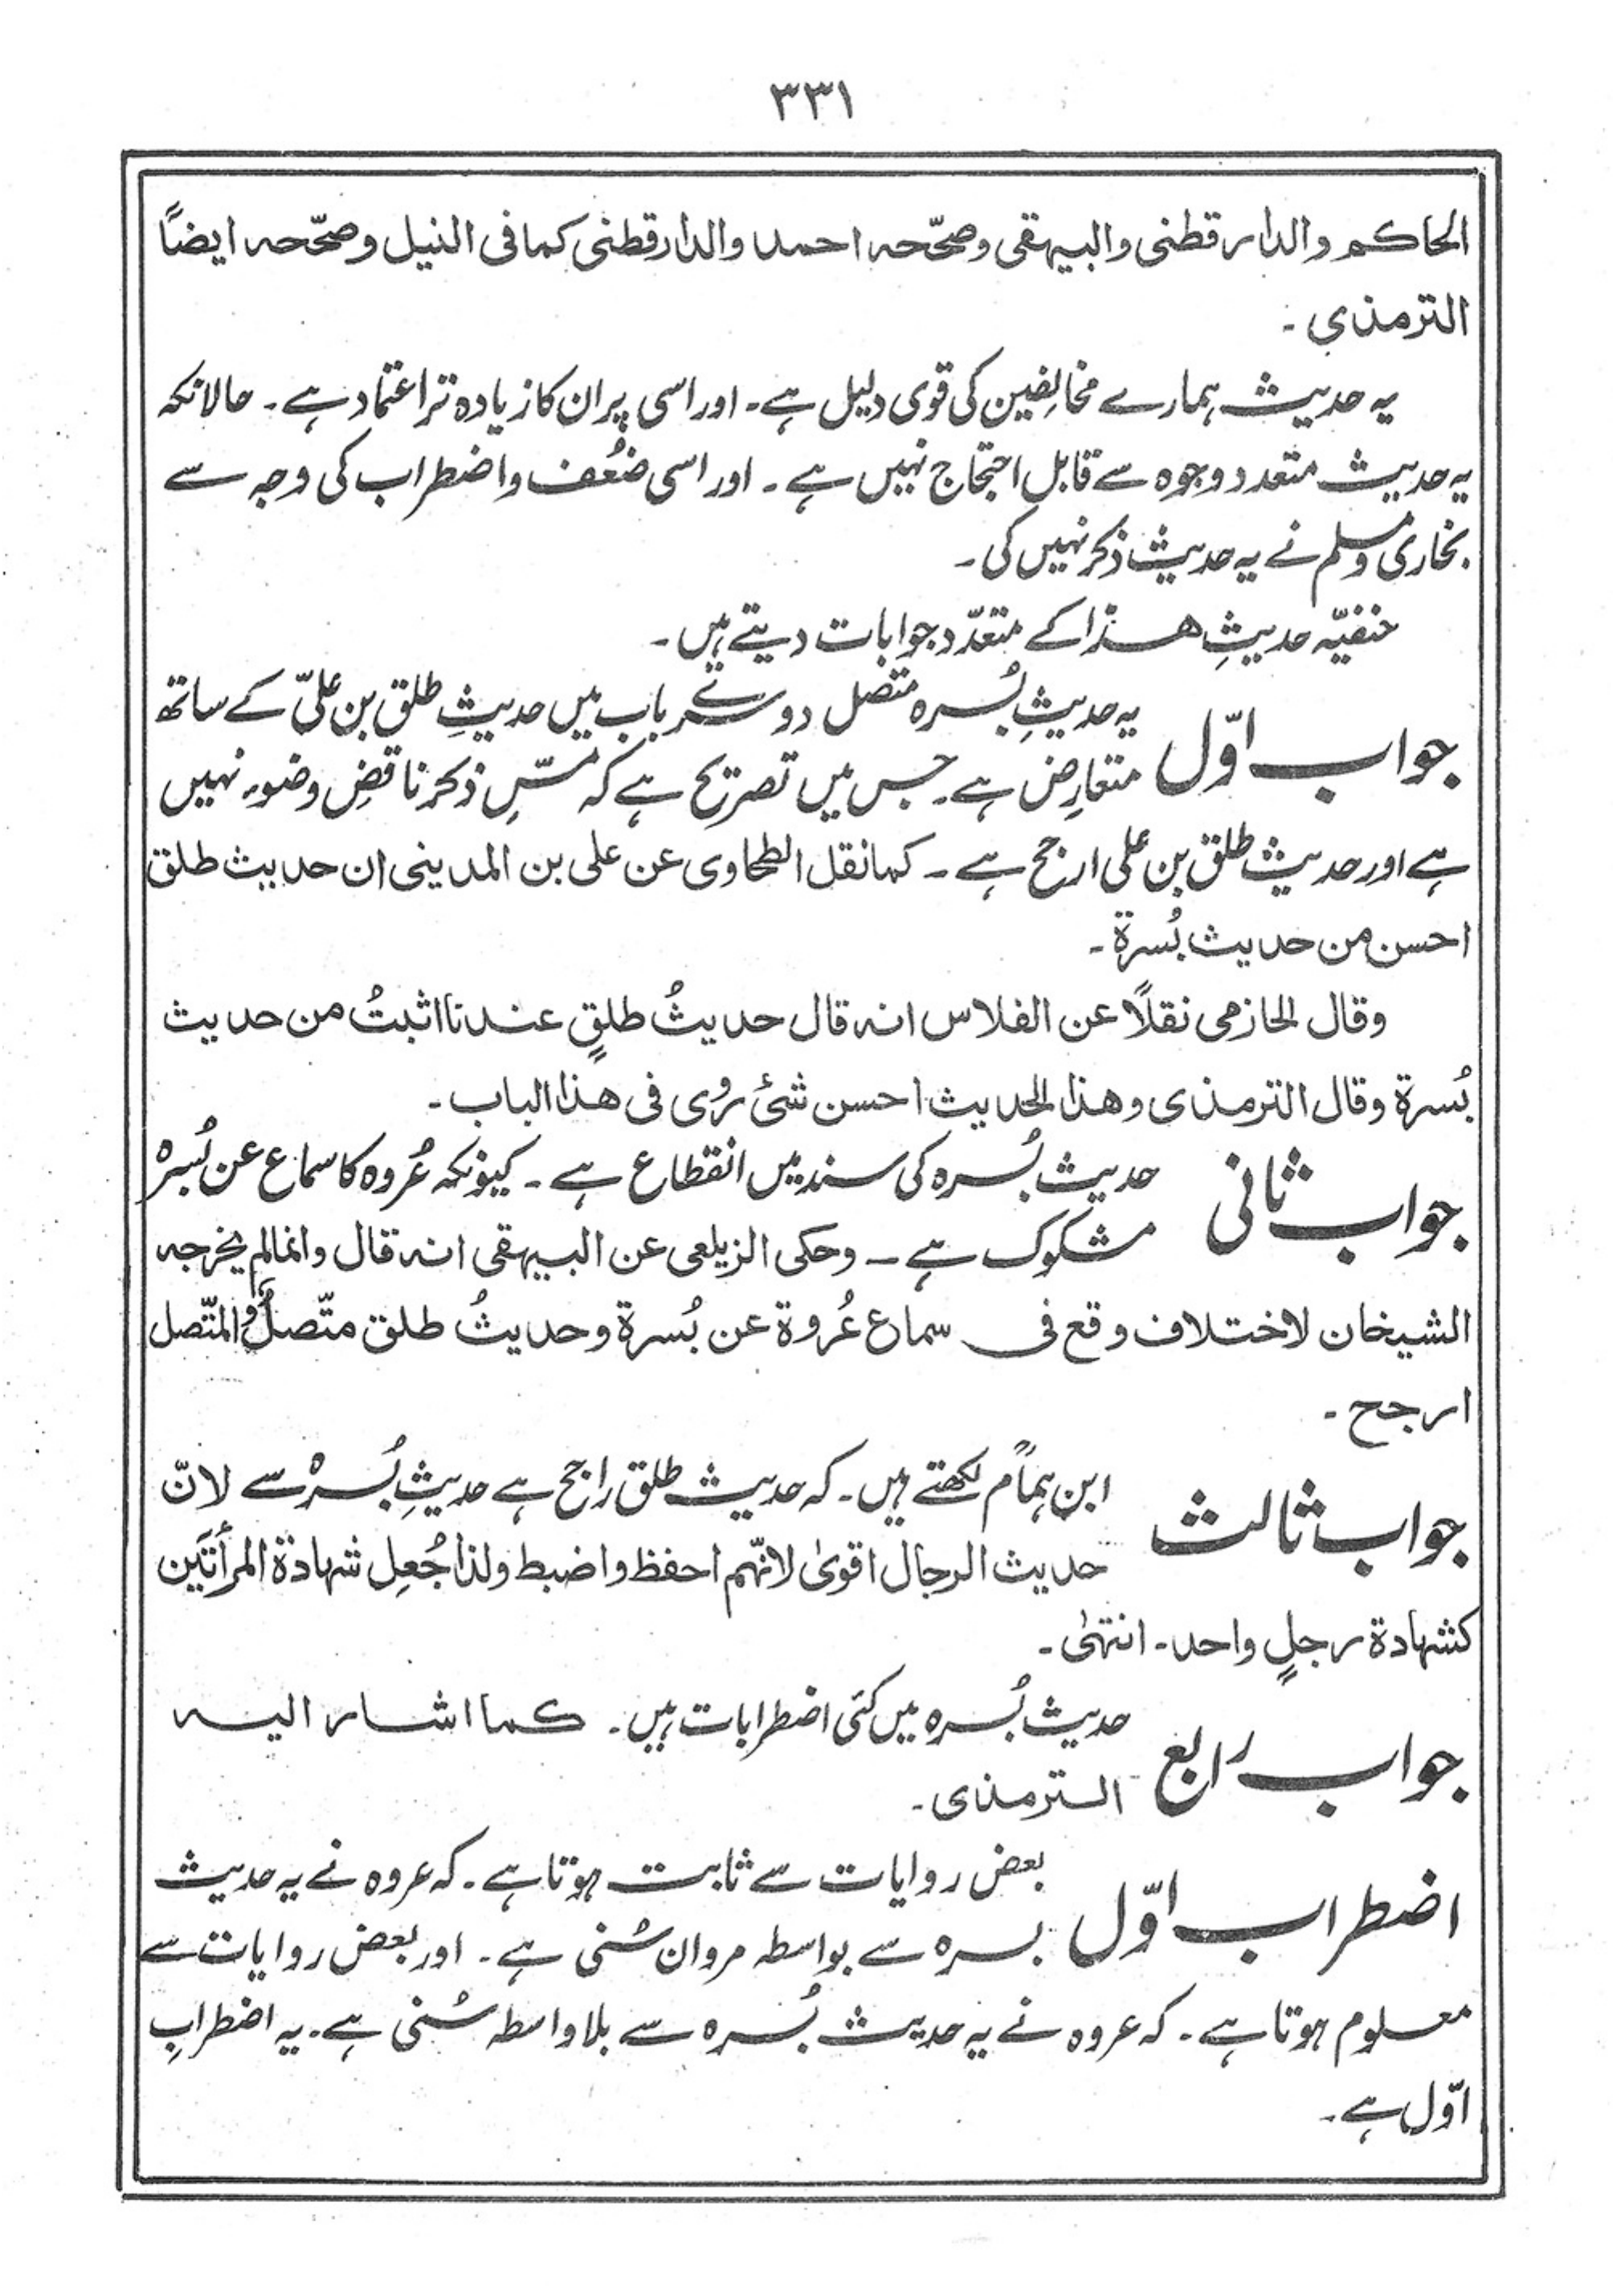 ٣٣١
الحاکم والدارقطنی والبیہقی وصحّحہ احمد والدارقطنی کما فی النیل وصحّحہ ایضاً
الترمذی ۔
یہ حدیث ہمارے مخالِفین کی قوی دلیل ہے۔ اور اسی پر ان کا زیادہ تر اعتماد ہے ۔ حالانکہ
یہ حدیث متعدد وجوہ سے قابلِ احتجاج نہیں ہے ۔ اور اسی ضُعف واضطراب کی وجہ سے
بخاری ومسلم نے یہ حدیث ذکر نہیں کی ۔
حنفیّہ حدیثِ ھذا کے متعدّد جوابات دیتے ہیں ۔
جواب اوّل یہ حدیثِ بُسرہ متصل دوسرے باب میں حدیثِ طلق بن علیّ کے ساتھ
متعارِض ہے۔ جس میں تصریح ہے کہ مسِّ ذکر ناقضِ وضوء نہیں
ہے اور حدیث طلق بن علی ارجح ہے ۔ کما نقل الطحاوی عن علی بن المدینی ان حدیث طلق
احسن من حدیث بُسرۃ ۔
وقال الحازمی نقلًا عن الفلاس انہ قال حدیثُ طلقٍ عندنا اثبتُ من حدیث
بُسرۃ وقال الترمذی وھذا الحدیث احسن شیٔ رُوی فی ھذا الباب ۔
جواب ثانی حدیث بُسرہ کی سند میں انقطاع ہے ۔ کیونکہ عُروہ کا سماع عن بُسرہ
مشکوک ہے ۔ وحکی الزیلعی عن البیہقی انہ قال وانما لم یخرجہ
الشیخان لاختلاف وقع فی سماع عُروۃ عن بُسرۃ وحدیثُ طلق متّصلٌ والمتّصل
ارجح ۔
جواب ثالث ابن ہمامؒ لکھتے ہیں ۔ کہ حدیث طلق راجح ہے حدیثِ بُسرہ سے لانّ
حدیث الرجال اقویٰ لانّہم احفظ واضبط ولذا جُعِل شہادۃ المرأتَین
کشہادۃ رجلٍ واحد ۔ انتہٰی ۔
جواب رابع حدیث بُسرہ میں کئی اضطرابات ہیں ۔ کما اشار الیہ
الترمذی ۔
اضطراب اوّل بعض روایات سے ثابت ہوتا ہے ۔ کہ عروہ نے یہ حدیث
بسرہ سے بواسطہ مروان سُنی ہے ۔ اور بعض روایات سے
معلوم ہوتا ہے ۔ کہ عروہ نے یہ حدیث بُسرہ سے بلا واسطہ سُنی ہے ۔ یہ اضطرابِ
اوّل ہے ۔